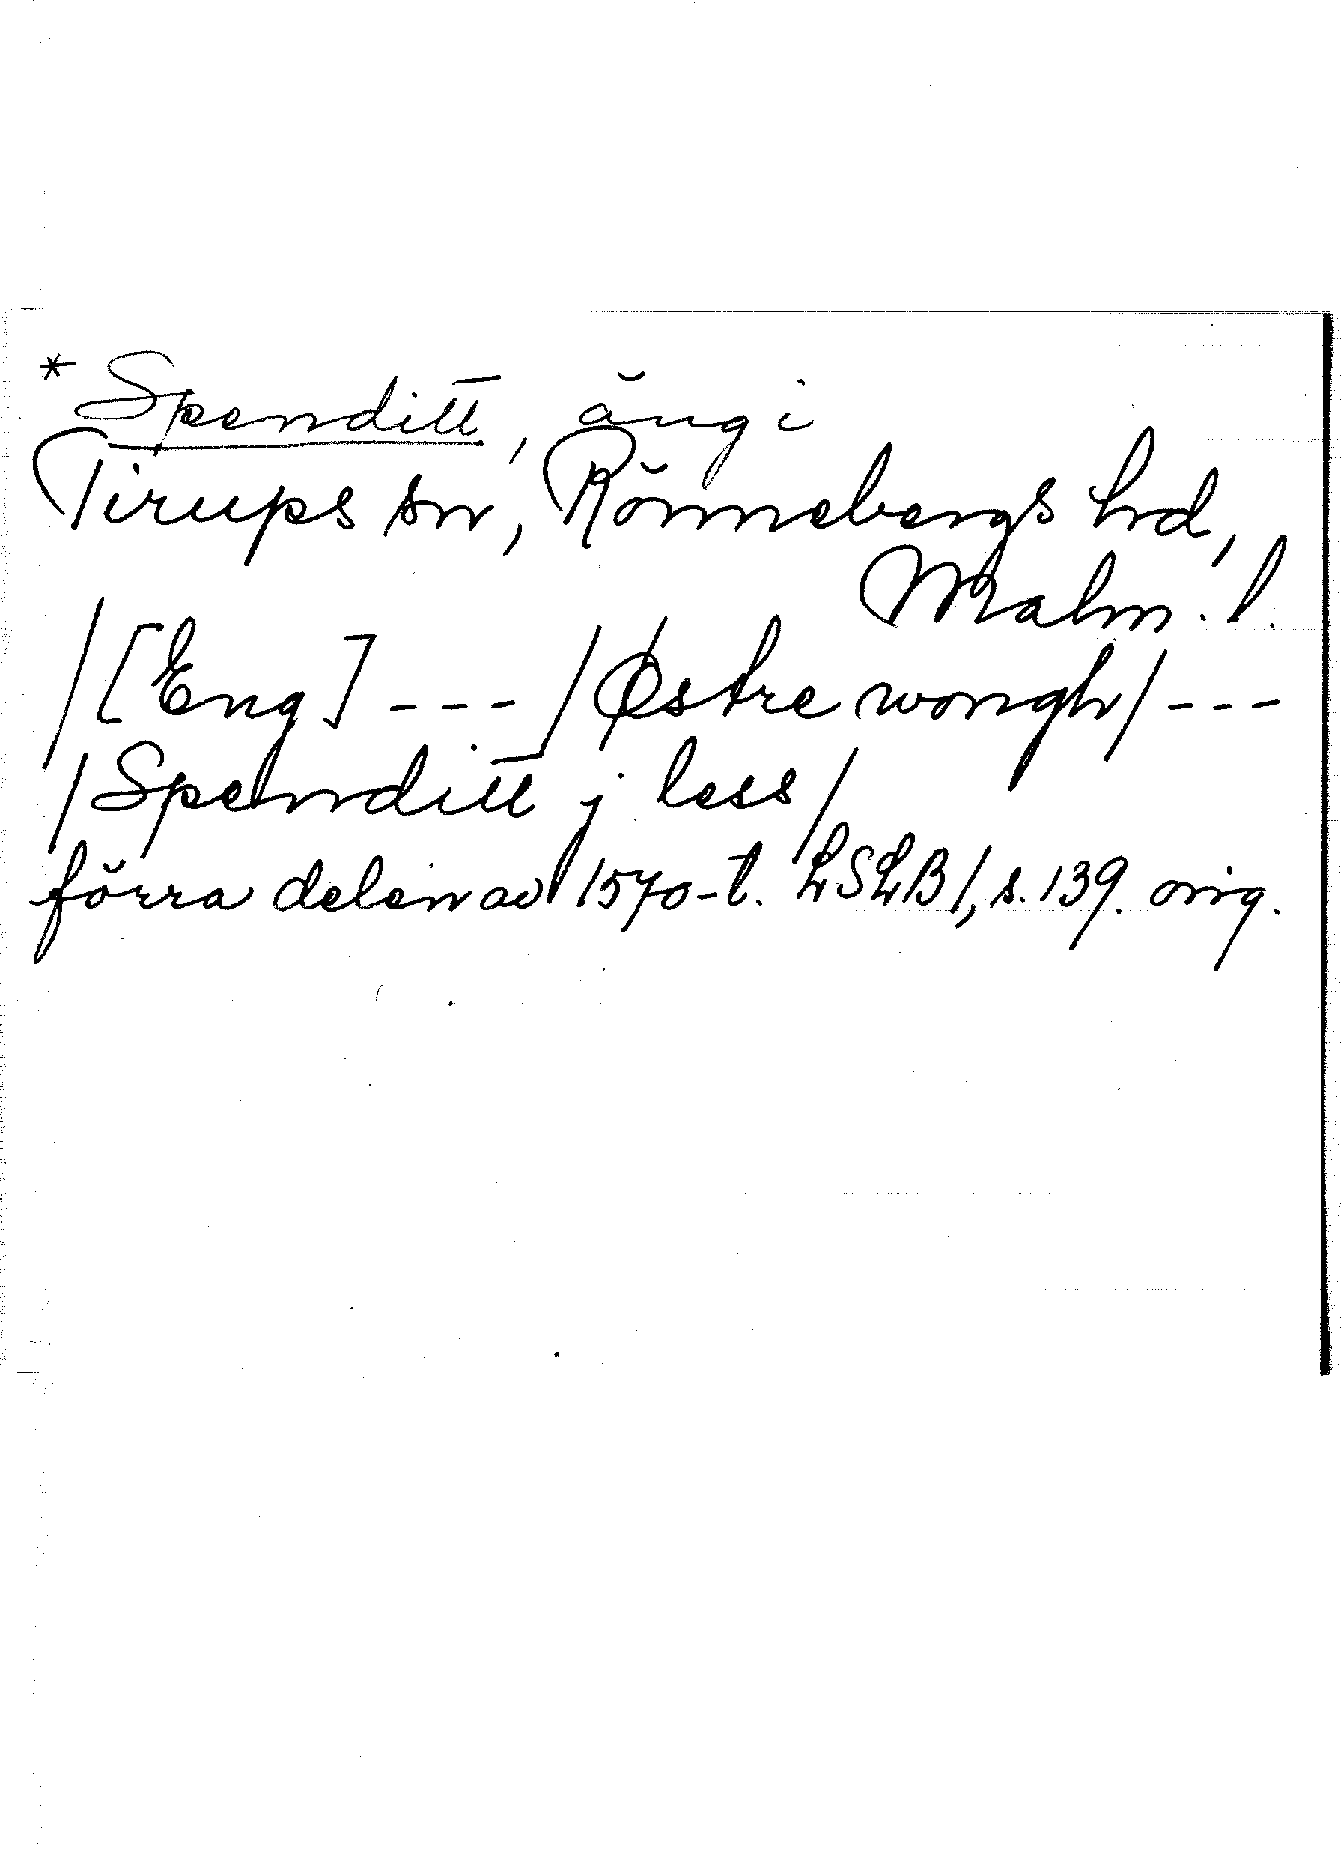 * Spenditt, äng i
Tirups sn, Rönnebergs hrd,
Malm. l.
/[Eng] --- /Østre wongh/ ---
/Spenditt j less/
förra delen av 1570-t. LSLB 1, s. 139. orig.